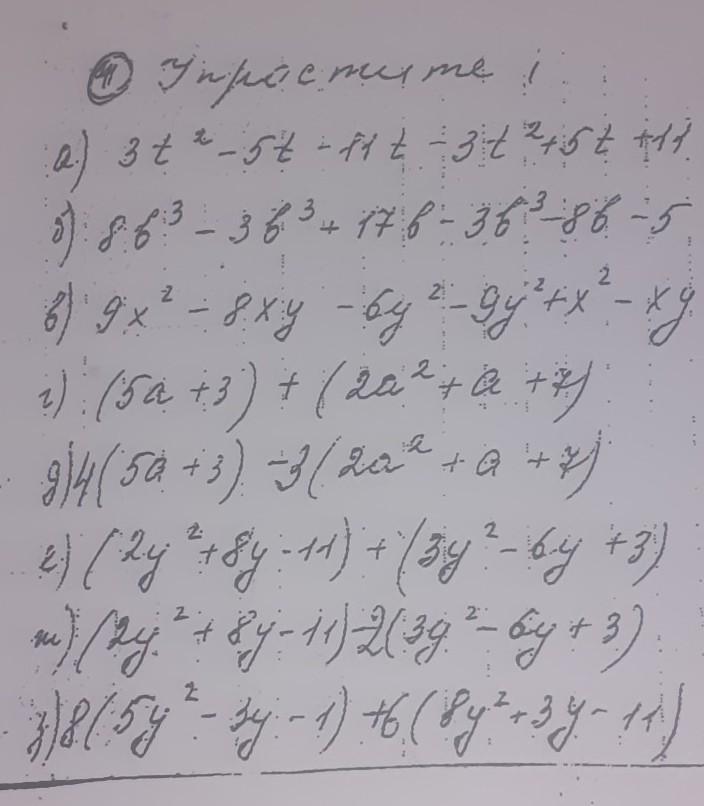 ④ Упростите!
а) 3t² - 5t - 11t - 3t² + 5t + 11
б) 8b³ - 3b³ + 17b - 3b³ - 8b - 5
в) 9x² - 8xy - 6y² - 9y² + x² - xy
г) (5a + 3) + (2a² + a + 7)
д) 4(5a + 3) - 3(2a² + a + 7)
е) (2y² + 8y - 11) + (3y² - 6y + 3)
ж) (2y² + 8y - 11) - 2(3y² - 6y + 3)
з) 8(5y² - 3y - 1) + 6(8y² + 3y - 11)